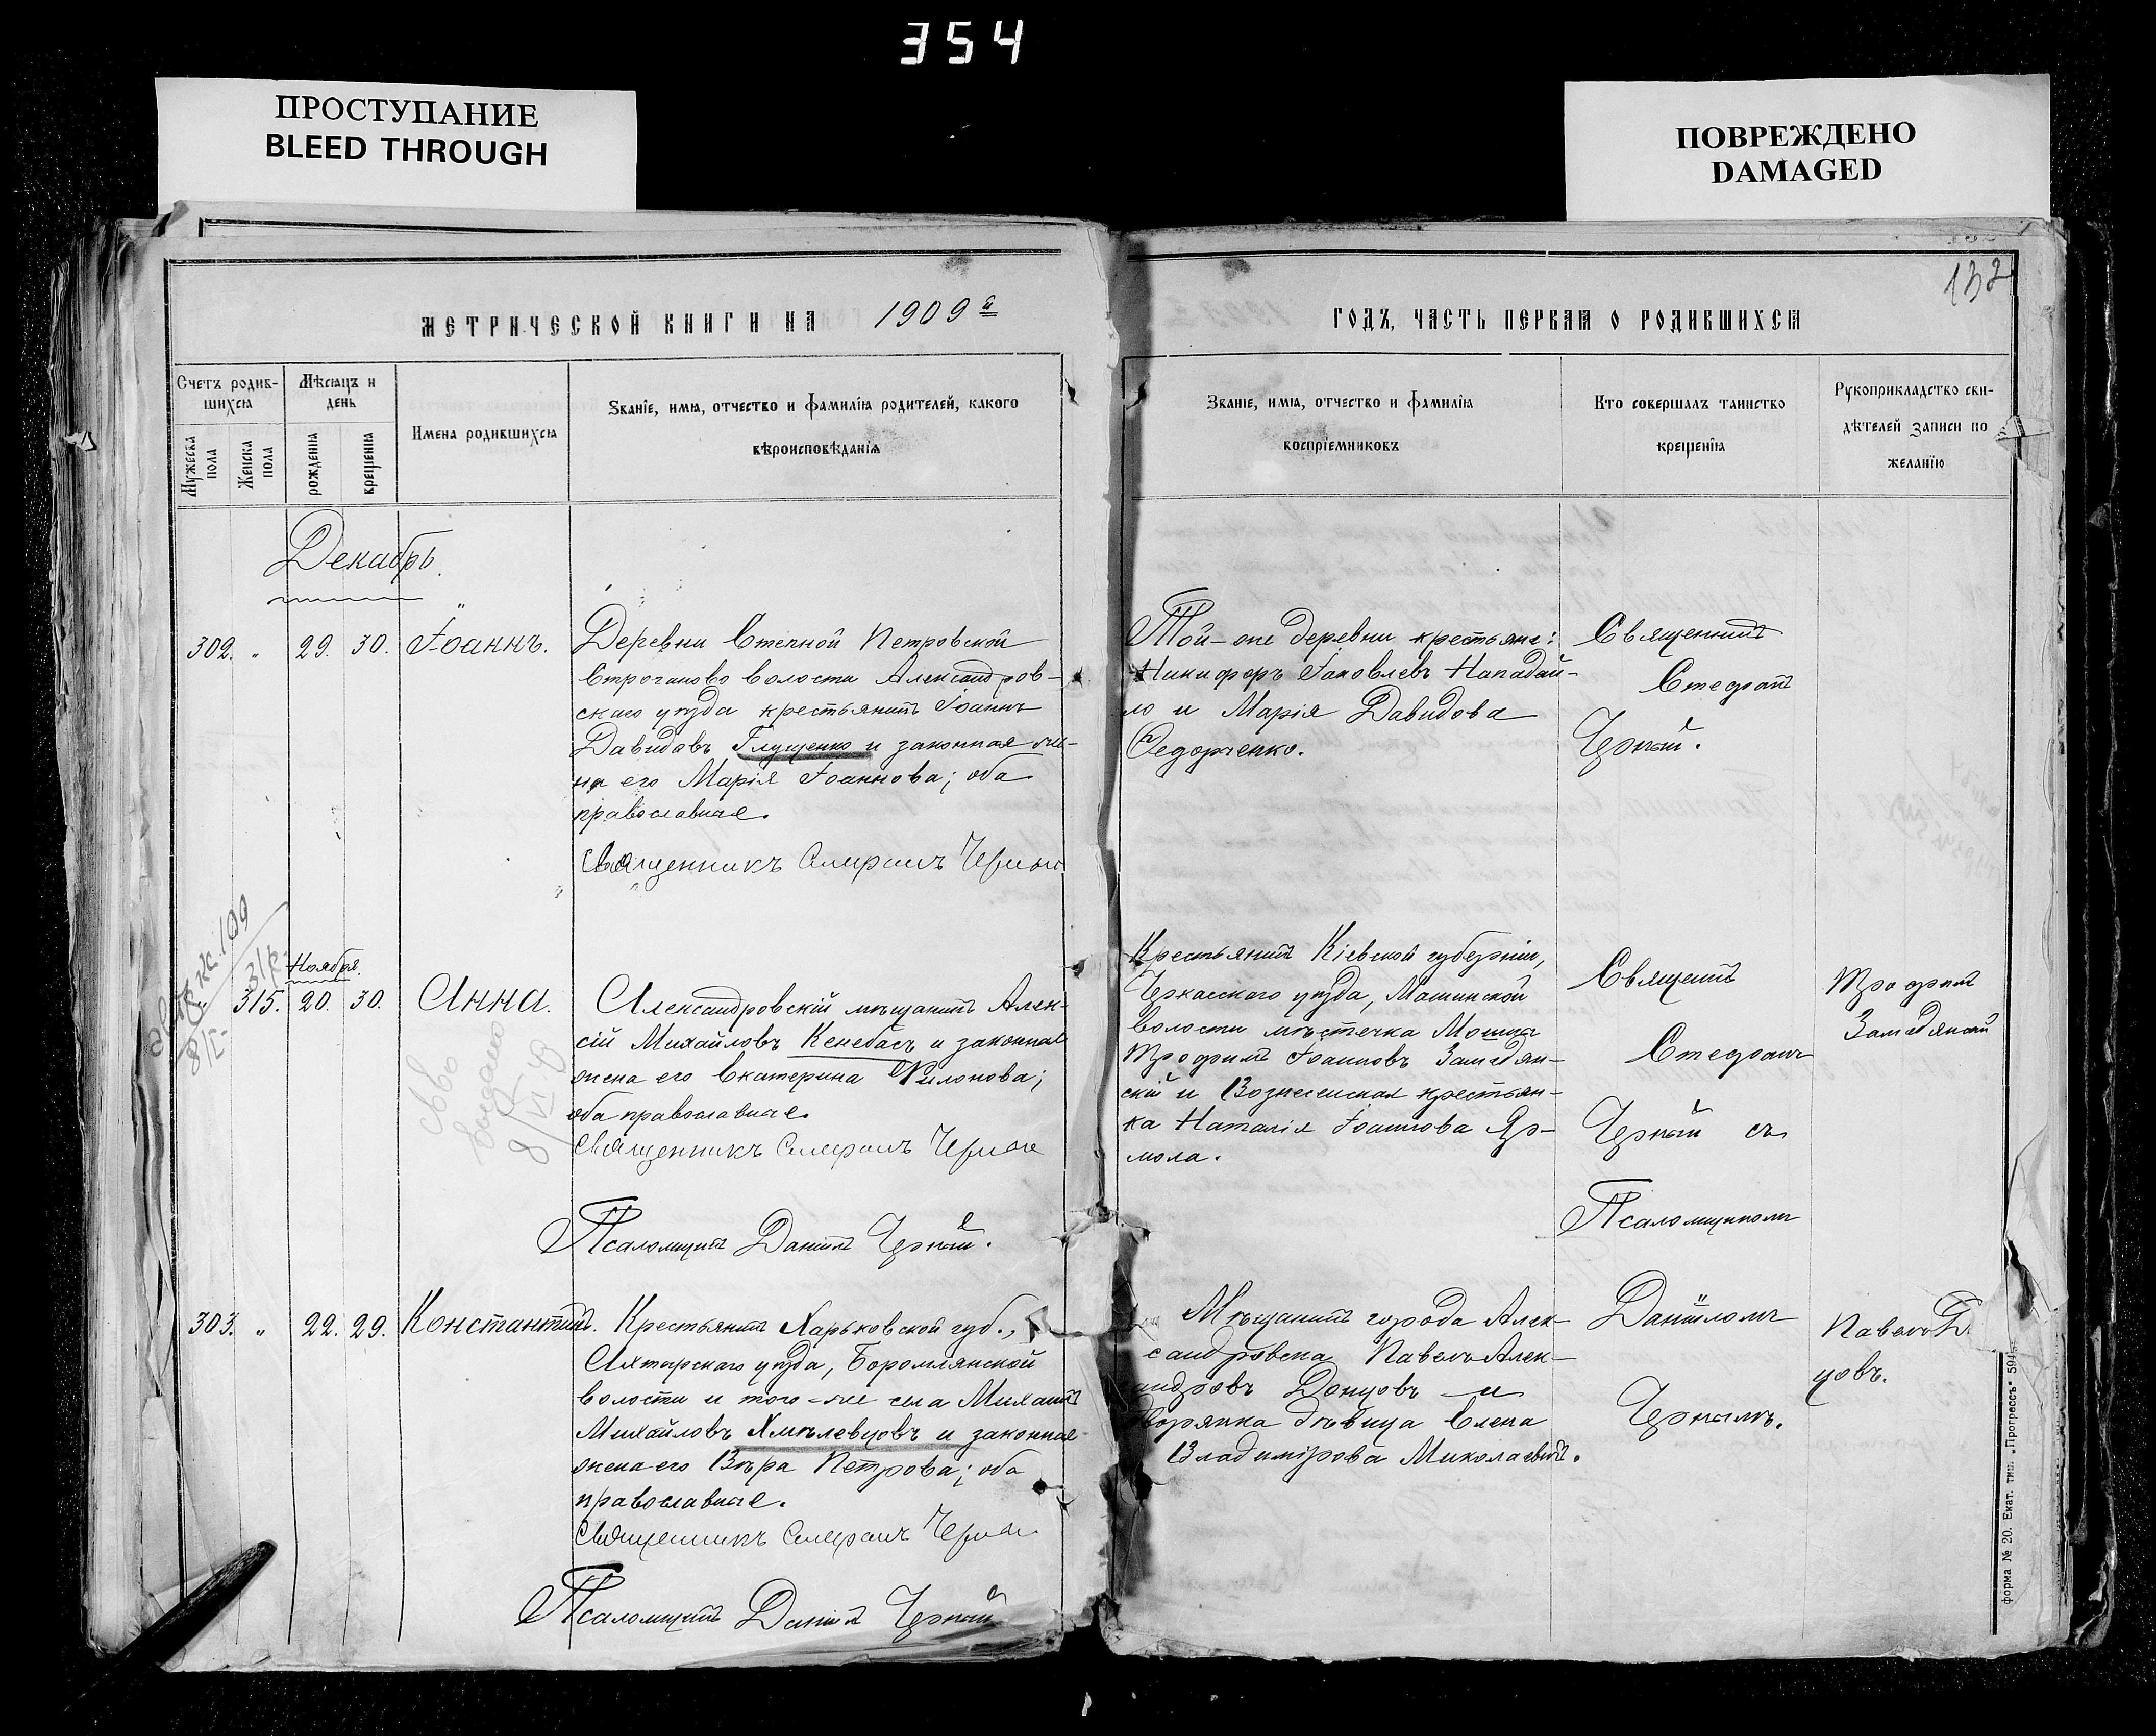 354
ПРОСТУПАНИЕ
BLEED THROUGH
ПОВРЕЖДЕНО
DAMAGED
132
МЕТРИЧЕСКОЙ КНИГИ НА 1909й
ГОДЪ, ЧАСТЬ ПЕРВАЯ О РОДИВШИХСЯ
Счетъ родив-
шихся
Мужеска
пола
Женска
пола
Мѣсяцъ и
день
рожденiя
крещенiя
Имена родившихся
Званiе, имя, отчество и фамилiя родителей, какого
вѣроисповѣданiя
Званiе, имя, отчество и фамилiя
воспрiемниковъ
Кто совершалъ таинство
крещенiя
Рукоприкладство сви-
дѣтелей записи по
желанiю
Декабрь.
302. „ 29. 30. Іоаннъ.
Деревни Степной Петровской
Строганово волости Александров-
скаго уѣзда крестьянинъ Іоаннъ
Давидовъ Глущенко и законная же-
на его Марія Іоаннова; оба
православные.
Священникъ Стефанъ Черный
Той-же деревни крестьяне:
Никифоръ Іаковлевъ Нападай-
ло и Марія Давидова
Ѳедорченко.
Священникъ
Стефанъ
Черный.
Ноября.
315. 20. 30. Анна.
Александровскій мѣщанинъ Алек-
сій Михайловъ Кенебасъ и законная
жена его Екатерина Филонова;
оба православные.
Священникъ Стефанъ Черный
Псаломщикъ Даніилъ Черный.
Крестьянинъ Кіевской губерніи,
Черкасскаго уѣзда, Мошинской
волости мѣстечка Мошны
Трофимъ Іоанновъ Замедян-
скій и Вознесенская крестьян-
ка Наталія Іоаннова Яр-
мола.
Священ
Стефанъ
Черный съ
Псаломщикомъ
Трофимъ
Замедянскій
выдано
303. „ 22. 29. Константинъ.
Крестьянинъ Харьковской губ.,
Ахтырскаго уѣзда, Боромлянской
волости и того-же села Михаилъ
Михайловъ Хмѣлевцовъ и законная
жена его Вѣра Петрова; оба
православные.
Священникъ Стефанъ Черный
Псаломщикъ Даніилъ Черный
Мѣщанинъ города Алек-
сандровска Павелъ Алек-
андровъ Донцовъ и
Дворянка дѣвица Елена
Владимірова Миколаевичъ.
Даніиломъ
Чернымъ.
Павелъ
цовъ.
форма № 20. Екат. тип. „Прогрессъ“